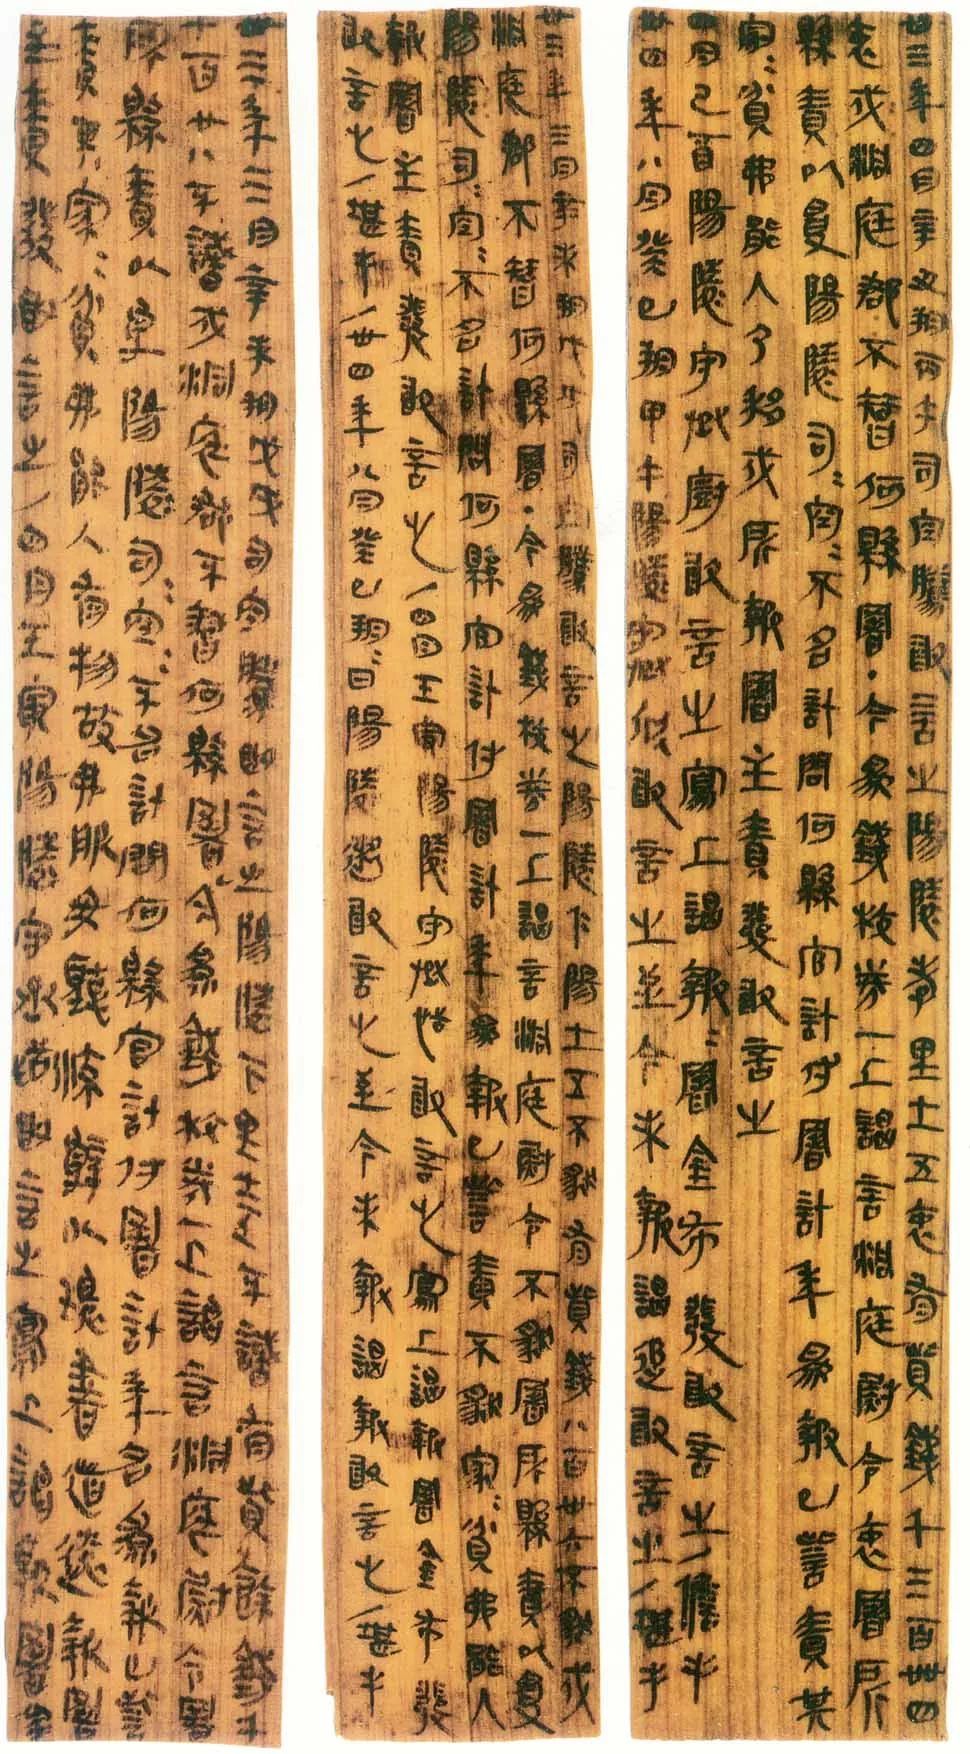 卅三年四月辛丑朔丙午司空騰敢言之陽陵孝里士五衷有貲錢千三百卌四
衷戍洞庭郡不智何縣署·今為錢校券一上謁言洞庭尉令衷署所
縣責以受陽陵司=空=不名計問何縣官計付署計年為報已訾責其
家=貧弗能入乃移戍所報署主責發敢言之
四月己酉陽陵守丞廚敢言之寫上謁報=署金布發敢言之/儋手
卅四年八月癸巳朔甲午陽陵守丞欣敢言之至今未報謁追敢言之/堪手
卅三年三月辛未朔戊戌司空騰敢言之陽陵下陽士五不豥有貲錢八百卅六不豥戍
洞庭郡不智何縣署·今為錢校券一上謁言洞庭尉令不豥署所縣責以受
陽陵司=空=不名計問何縣官計付署計年為報已訾責不豥家=貧弗能入
報署主責發敢言之/四月壬寅陽陵守丞恬敢言之寫上謁報署金布發
敢言之/堪手/卅四年八月癸巳朔=日陽陵遬敢言之至今未報謁報敢言之/堪手
卅三年三月辛未朔戊戌司空騰敢言之陽陵下里士五不識有貲餘錢千
七百廿八不識戍洞庭郡不智何縣署今為錢校券一上謁言洞庭尉令署
所縣責以受陽陵司=空=不名計問何縣官計付署計年名為報已訾
責其家=貧弗能入有物故弗服毋聽流辭以環書道遠報署
主責發敢言之/四月壬寅陽陵守丞恬敢言之寫上謁報署金